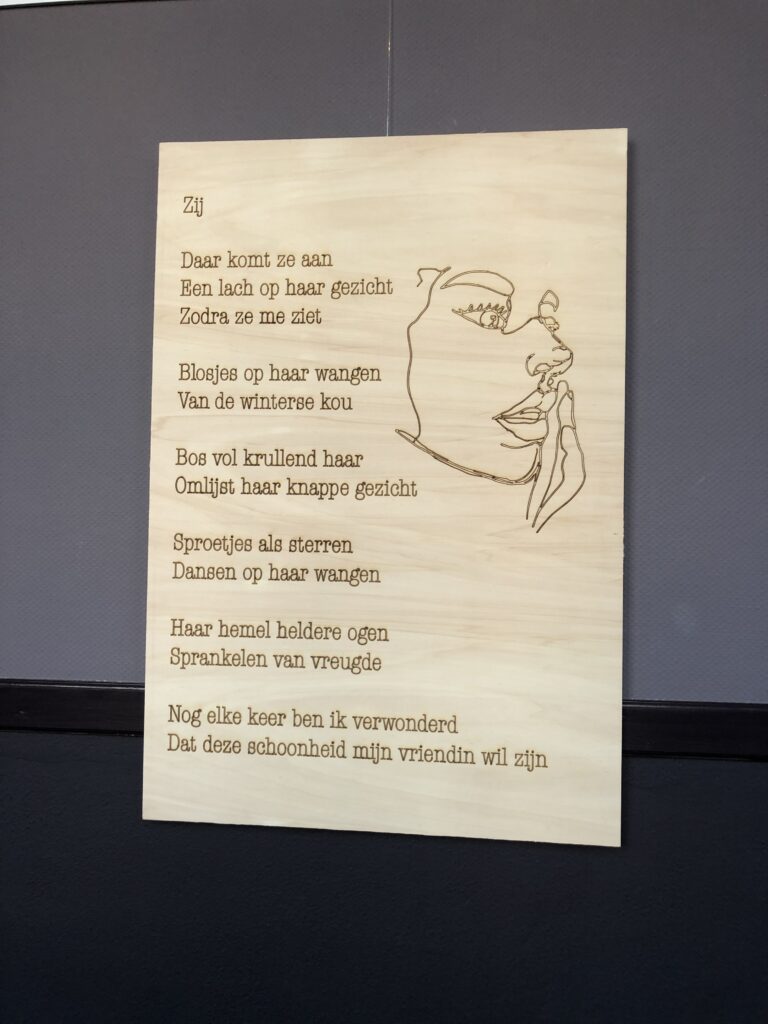 Zij
Daar komt ze aan
Een lach op haar gezicht
Zodra ze me ziet
Blosjes op haar wangen
Van de winterse kou
Bos vol krullend haar
Omlijst haar knappe gezicht
Sproetjes als sterren
Dansen op haar wangen
Haar hemel heldere ogen
Sprankelen van vreugde
Nog elke keer ben ik verwonderd
Dat deze schoonheid mijn vriendin wil zijn